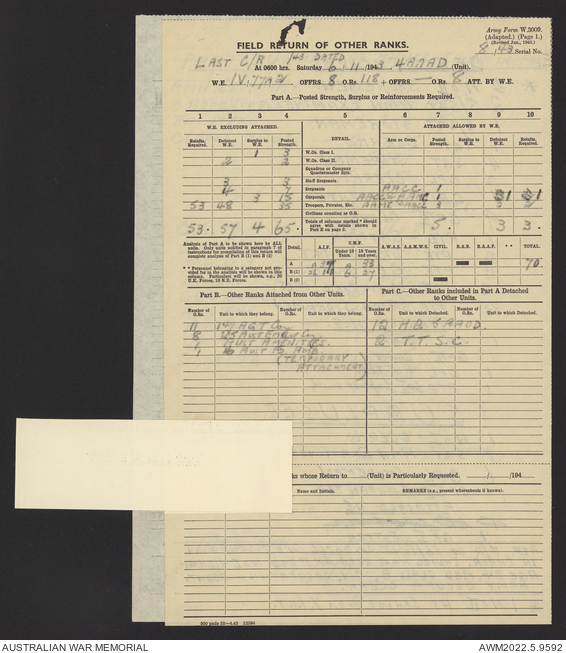 Army Form W.3009.
(Adapted.) (Page 1.)
(Revised Jan., 1943.)
8/43 Serial No.
FIELD RETURN OF OTHER RANKS.
LAST C/R /43 DATED
At 0600 hrs. Saturday 6/11/1943, 4 AAAD (Unit).
W.E. OFFRS. 8 O.Rs. 118 + OFFRS. — O.Rs. 8 ATT. BY W.E.
Part A.—Posted Strength, Surplus or Reinforcements Required.
1 2 3 4 5 6 7 8 9 10
W.E. EXCLUDING ATTACHED. DETAIL. ATTACHED ALLOWED BY W.E.
Reinfts. Required. Deficient W.E. Surplus to W.E. Posted Strength. Arm or Corps. Posted Strength. Surplus to W.E. Deficient W.E. Reinfts. Required.
1 3 W.Os. Class I.
2 2 W.Os. Class II.
Squadron or Company Quartermaster Sgts.
3 3 Staff Sergeants
4 Sergeants AACC 1
3 15 Corporals 1
53 48 35 Troopers, Privates, Etc. 3
Civilians counting as O.R.
53. 57 4 65. Totals of columns marked * should agree with details shown in Part B on page 2. 5. 3 3
Analysis of Part A to be shown here by ALL units. Only units notified in paragraph 7 of instructions for compilation of this return will complete analysis of Part B (1) and B (2)
Detail. A.I.F. C.M.F. A.W.A.S. A.A.M.W.S. CIVIL. R.A.N. R.A.A.F. * * TOTAL.
Under 19 Years. 19 Years and over.
* * Personnel belonging to a category not provided for in the analysis will be shown in this column. Particulars will be shown, e.g., 20 U.K. Forces, 10 N.Z. Forces.
A 33 70
B (1) 27
B (2)
Part B.—Other Ranks Attached from Other Units.
Part C.—Other Ranks included in Part A Detached to Other Units.
Number of O.Rs. Unit to which they belong. Number of O.Rs. Unit to which they belong. Number of O.Rs. Unit to which Detached. Number of O.Rs. Unit to which Detached.
11 147 AGT Coy 12 H.Q. 5 AAOD.
8 2 T.T.S.C.
1 AUST AMENITIES.
1
(TEMPORARY
ATTACHMENT)
ks whose Return to (Unit) is Particularly Requested. / /194
Name and Initials. REMARKS (e.g., present whereabouts if known).
AUSTRALIAN WAR MEMORIAL
AWM2022.5.9592